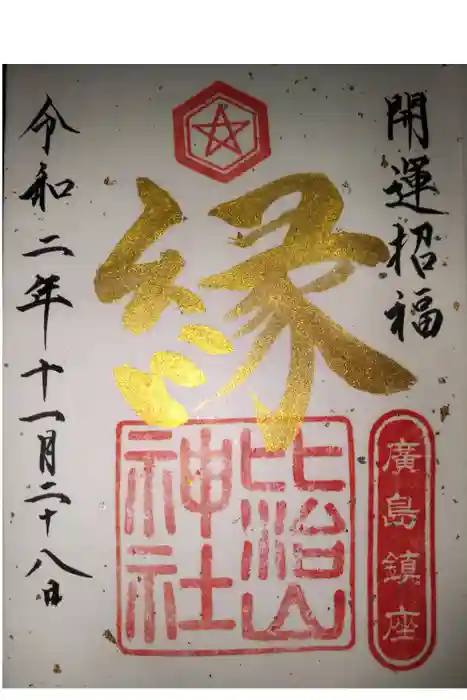 開運招福
廣島鎮座
縁
比治山
神社
令和二年十一月二十八日